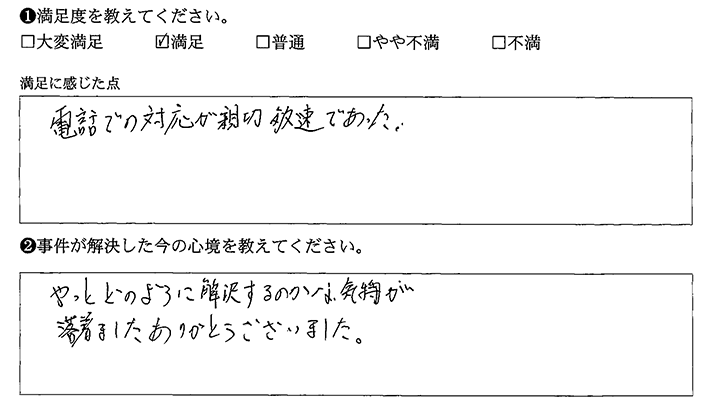 ❶満足度を教えてください。
☐大変満足 ☑満足 ☐普通 ☐やや不満 ☐不満
満足に感じた点
電話での対応が親切 敏速であった。
❷事件が解決した今の心境を教えてください。
やっと どのように解決するのか 気持が
落着ましたありがとうございました。